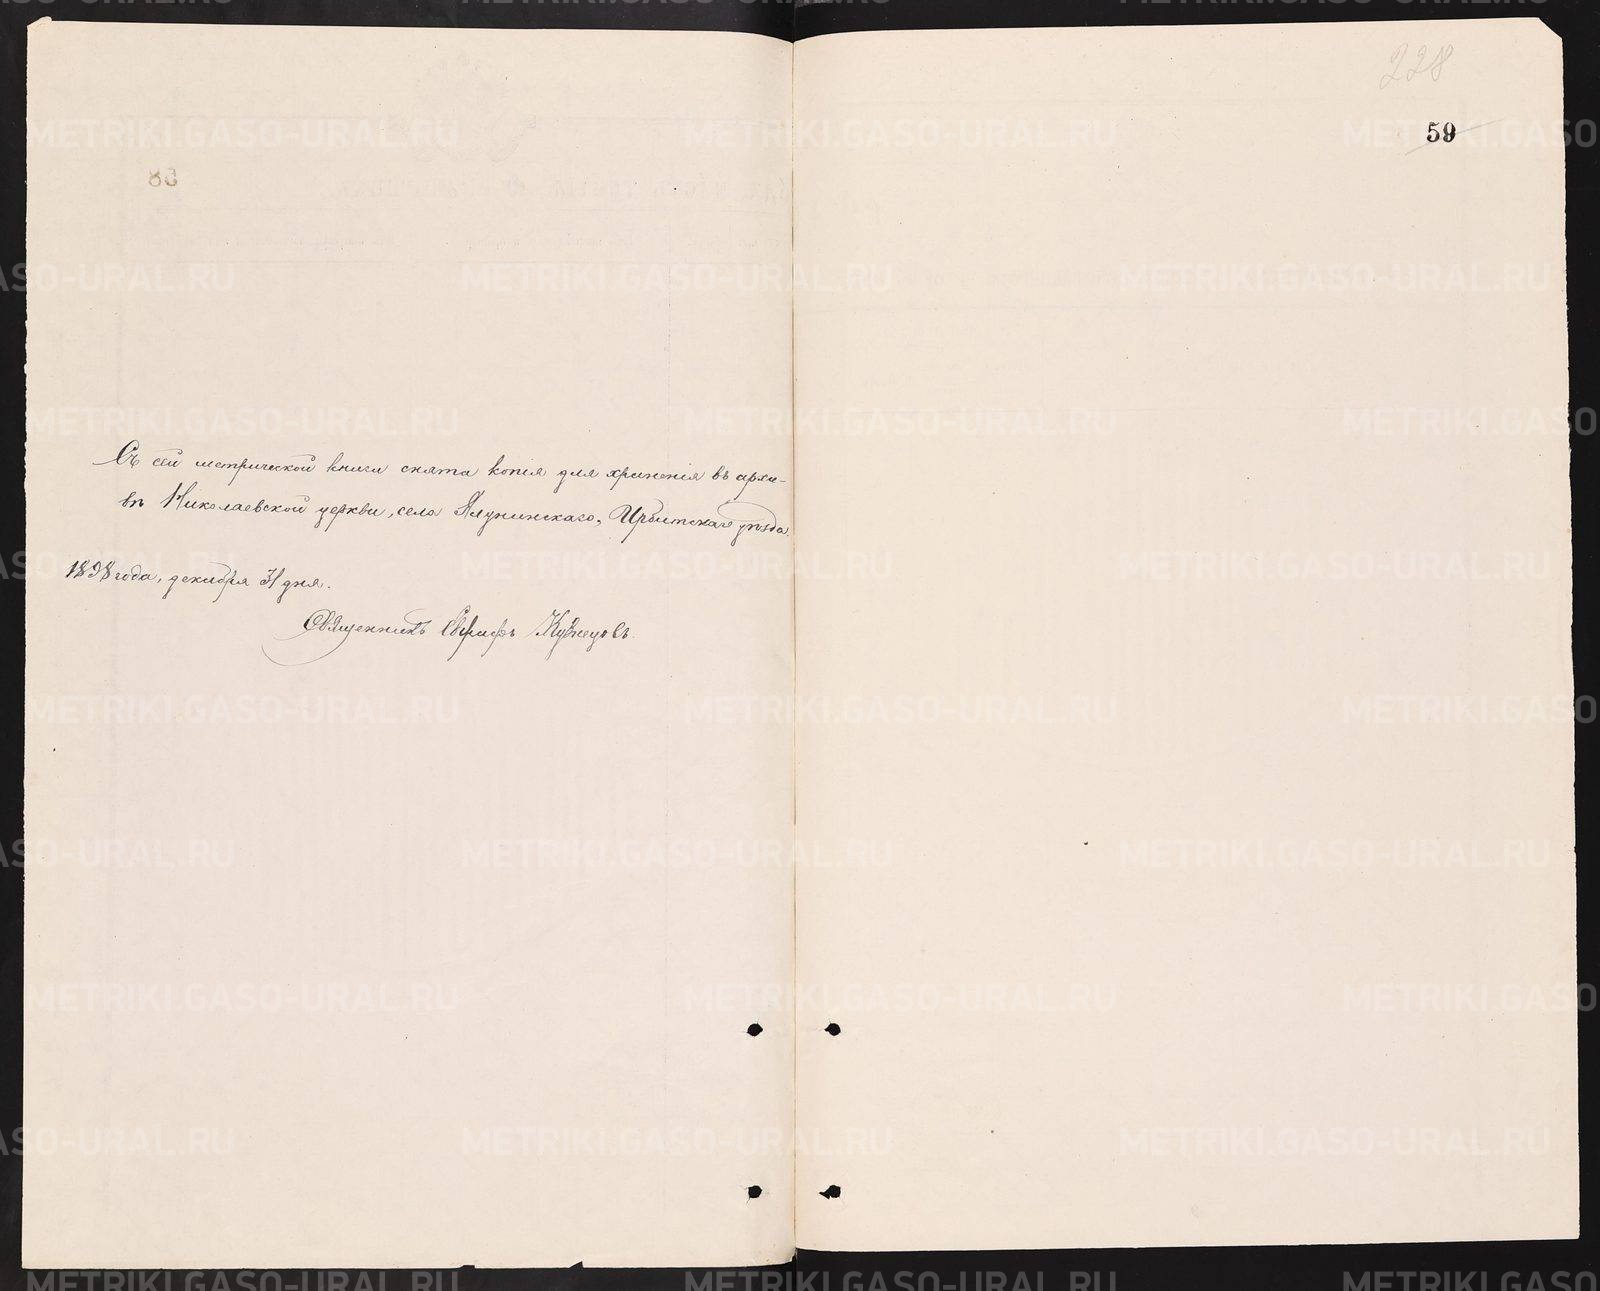 228
59
83
Съ сей метрической книги снята копія для храненія въ архи-
вѣ Николаевской церкви, села Ялунинскаго, Ирбитскаго уѣзда.
1898 года, декабря 31 дня.
Священникъ Кузнецовъ.
METRIKI.GASO-URAL.RU